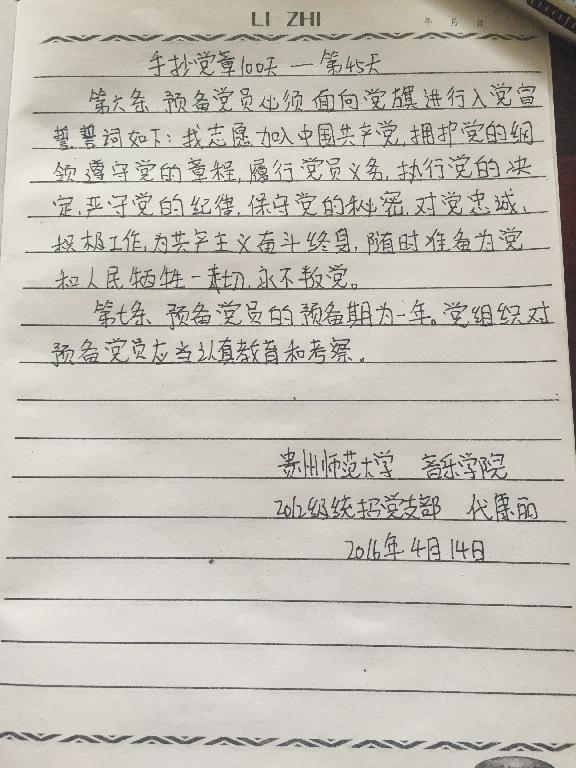 LI ZHI
年 月 日
手抄党章100天 — 第45天
第六条 预备党员必须面向党旗进行入党宣
誓。誓词如下:我志愿加入中国共产党,拥护党的纲
领遵守党的章程,履行党员义务,执行党的决
定,严守党的纪律,保守党的秘密,对党忠诚,
积极工作,为共产主义奋斗终身,随时准备为党
和人民牺牲一切,永不叛党。
第七条 预备党员的预备期为一年。党组织对
预备党员应当认真教育和考察。
贵州师范大学 音乐学院
2012级统招党支部 代康丽
2016年4月14日